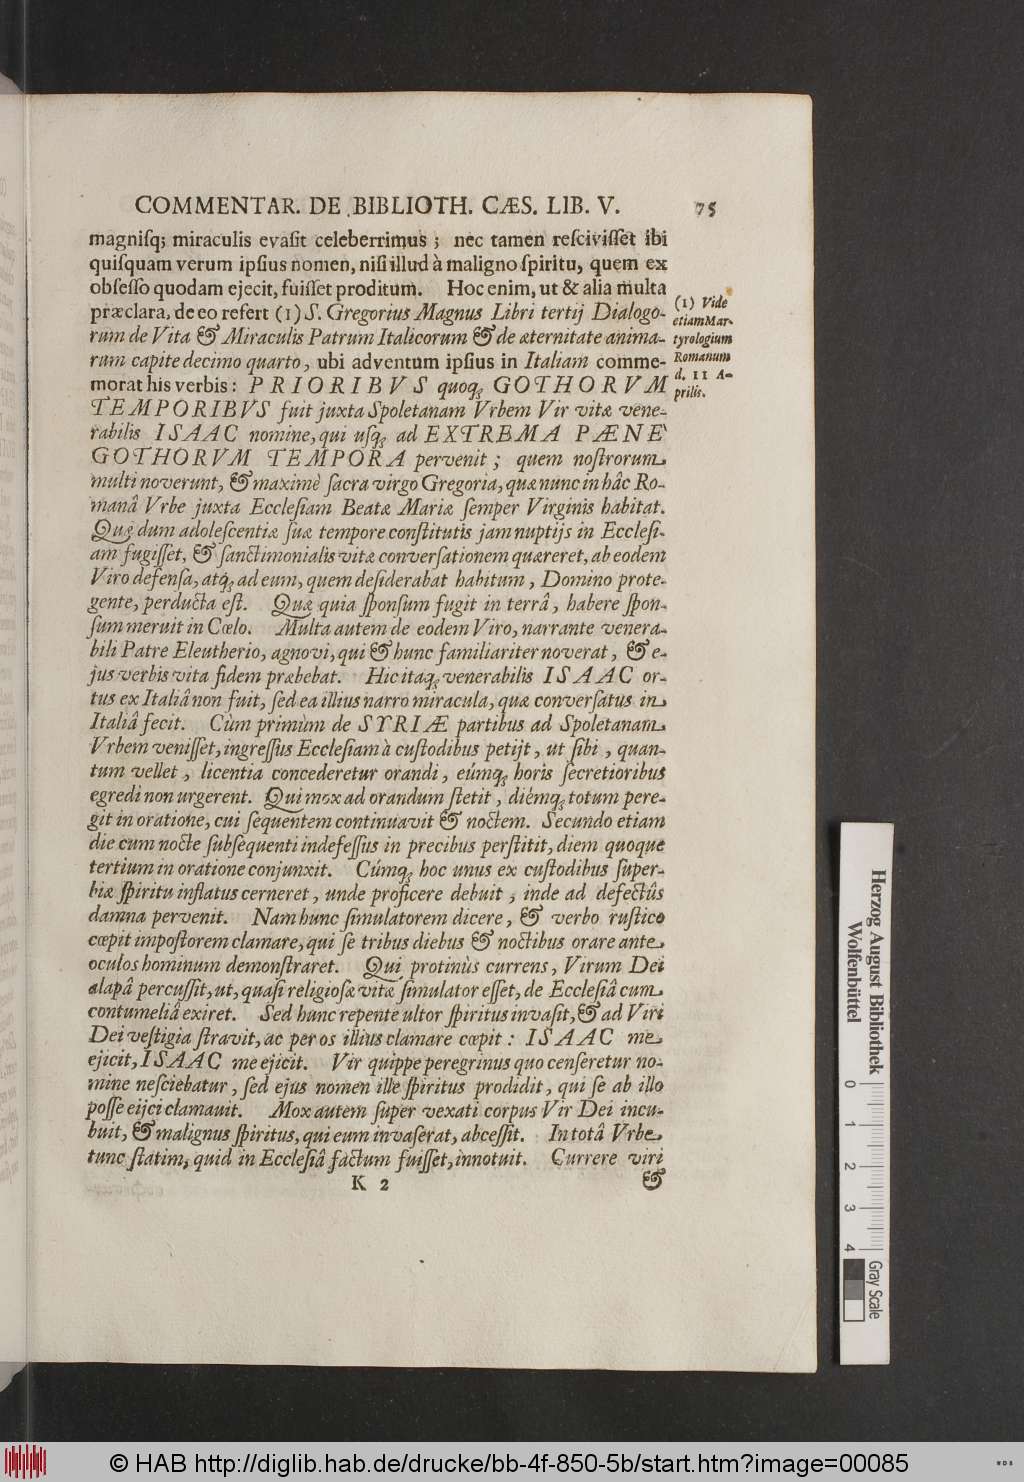 COMMENTAR. DE BIBLIOTH. CÆS. LIB. V. 75
magniſq; miraculis evaſit celeberrimus ; nec tamen reſciviſſet ibi
quiſquam verum ipſius nomen, niſi illud à maligno ſpiritu, quem ex
obſeſſo quodam ejecit, fuiſſet proditum. Hoc enim, ut & alia multa
præclara, de eo refert (1) S. Gregorius Magnus Libri tertij Dialogo-
rum de Vita & Miraculis Patrum Italicorum & de æternitate anima-
rum capite decimo quarto, ubi adventum ipſius in Italiam comme-
morat his verbis: PRIORIBVS quoq; GOTHORVM
TEMPORIBVS fuit juxta Spoletanam Vrbem Vir vitæ vene-
rabilis ISAAC nomine, qui uſq; ad EXTREMA PÆNE
GOTHORVM TEMPORA pervenit ; quem noſtrorum
multi noverunt, & maximè ſacra virgo Gregoria, quæ nunc in hâc Ro-
manâ Vrbe juxta Eccleſiam Beatæ Mariæ ſemper Virginis habitat.
Quæ dum adoleſcentiæ ſuæ tempore conſtitutis jam nuptijs in Eccleſi-
am fugiſſet, & ſanctimonialis vitæ converſationem quæreret, ab eodem
Viro defenſa, atq; ad eum, quem deſiderabat habitum, Domino prote-
gente, perducta eſt. Quæ quia ſponſum fugit in terrâ, habere ſpon-
ſum meruit in Cœlo. Multa autem de eodem Viro, narrante venera-
bili Patre Eleutherio, agnovi, qui & hunc familiariter noverat, & e-
jus verbis vita fidem præbebat. Hic itaq; venerabilis ISAAC or-
tus ex Italiâ non fuit, ſed ea illius narro miracula, quæ converſatus in
Italiâ fecit. Cùm primùm de SYRIÆ partibus ad Spoletanam
Vrbem veniſſet, ingreſſus Eccleſiam à cuſtodibus petijt, ut ſibi, quan-
tum vellet, licentia concederetur orandi, eúmq; horis ſecretioribus
egredi non urgerent. Qui mox ad orandum ſtetit, diémq; totum pere-
git in oratione, cui ſequentem continuavit & noctem. Secundo etiam
die cum nocte ſubſequenti indefeſſus in precibus perſtitit, diem quoque
tertium in oratione conjunxit. Cúmq; hoc unus ex cuſtodibus ſuper-
biæ ſpiritu inflatus cerneret, unde proficere debuit, inde ad defectûs
damna pervenit. Nam hunc ſimulatorem dicere, & verbo ruſtico
cœpit impoſtorem clamare, qui ſe tribus diebus & noctibus orare ante
oculos hominum demonſtraret. Qui protinùs currens, Virum Dei
alapâ percuſſit, ut, quaſi religioſæ vitæ ſimulator eſſet, de Eccleſiâ cum
contumeliâ exiret. Sed hunc repente ultor ſpiritus invaſit, & ad Viri
Dei veſtigia ſtravit, ac per os illius clamare cœpit: ISAAC me
ejicit, ISAAC me ejicit. Vir quippe peregrinus quo cenſeretur no-
mine neſciebatur, ſed ejus nomen ille ſpiritus prodidit, qui ſe ab illo
poſſe eijci clamauit. Mox autem ſuper vexati corpus Vir Dei incu-
buit, & malignus ſpiritus, qui eum invaſerat, abceſſit. In totâ Vrbe
tunc ſtatim, quid in Eccleſiâ factum fuiſſet, innotuit. Currere viri
K 2 &
(1) Vide
etiam Mar-
tyrologium
Romanum
d. 11 A-
prilis.
Herzog August Bibliothek
Wolfenbüttel
0 1 2 3 4
Gray Scale
© HAB http://diglib.hab.de/drucke/bb-4f-850-5b/start.htm?image=00085